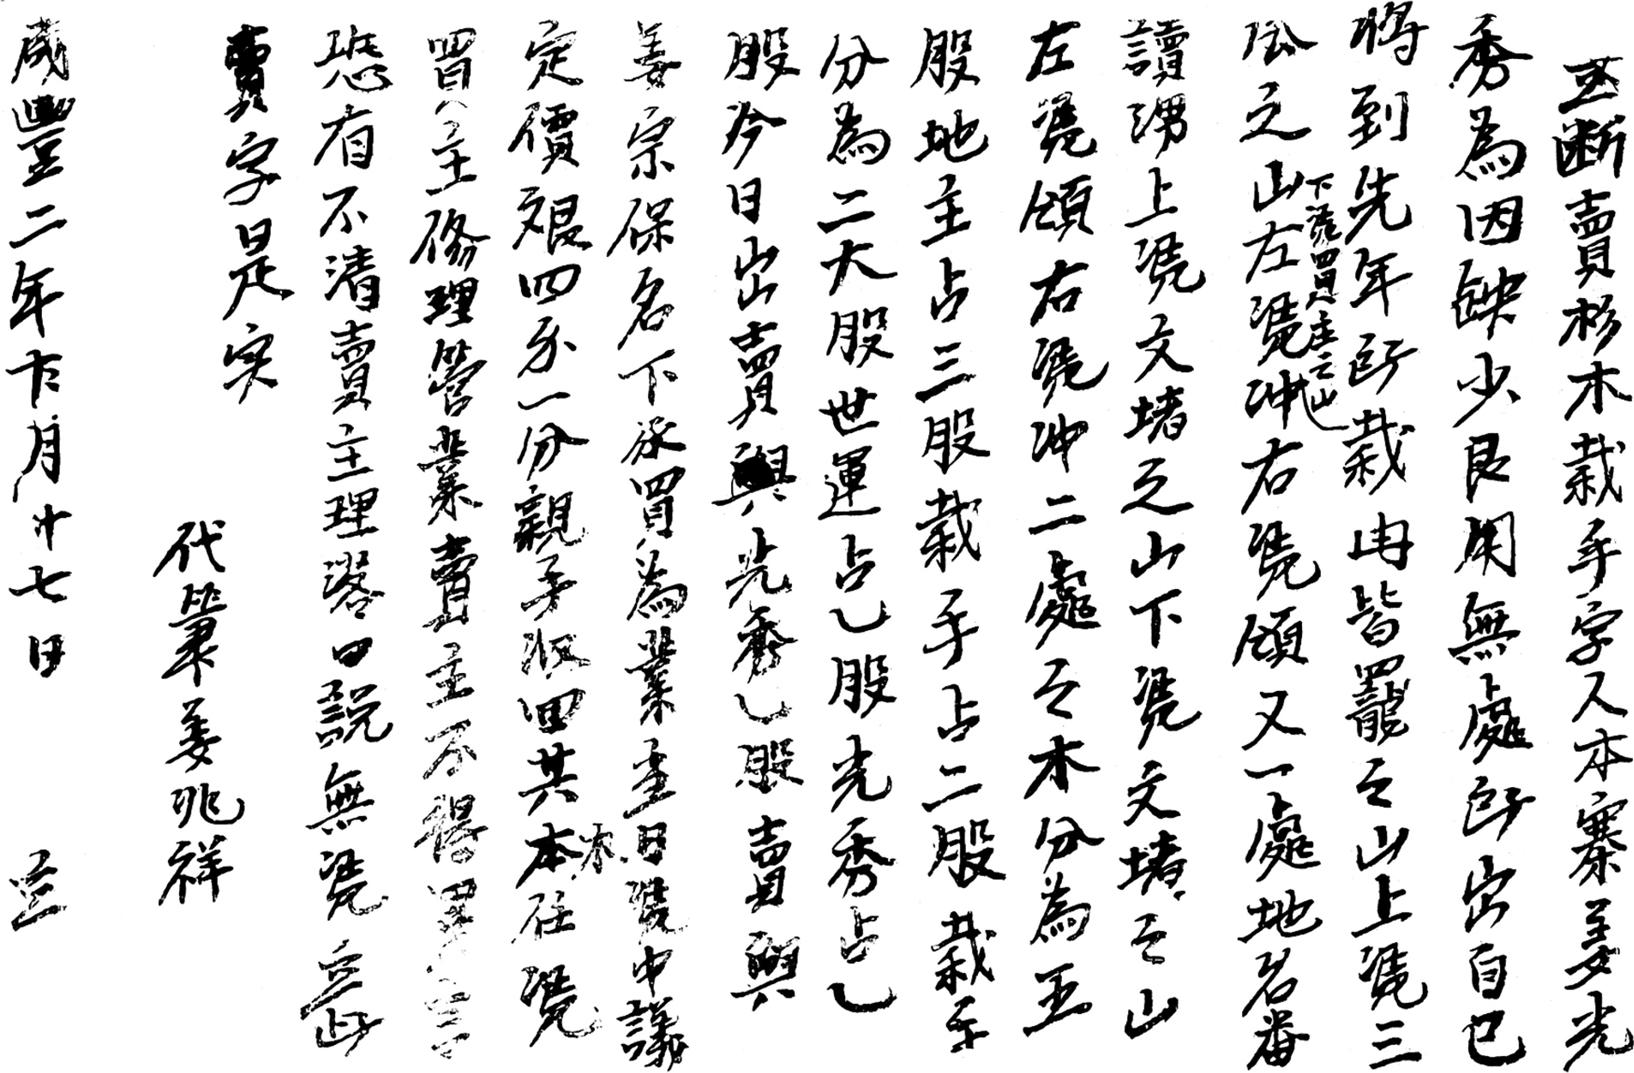 立断賣杉木栽手字人本寨姜光
秀為因缺少艮用無處所出自己
將到先年所栽冉皆羆之山上凴三
公之山下凴買主之山左凴冲右凴領又一處地名番
讀湧上凴文堵之山下凴文堵之山
左凴領右凴冲二處之木分為五
股地主占三股栽手占二股栽手
分為二大股世運占乚股光秀占乚
股今日出賣與光秀乚股賣與
姜宗保名下承買為業当日凴中議
定價艰四分一分親手收回其木在凴
買主修理管業賣主不得異言
恐有不清賣主理落口説無凴立此
賣字是实
代筆姜兆祥
咸豐二年十月廿七日 立